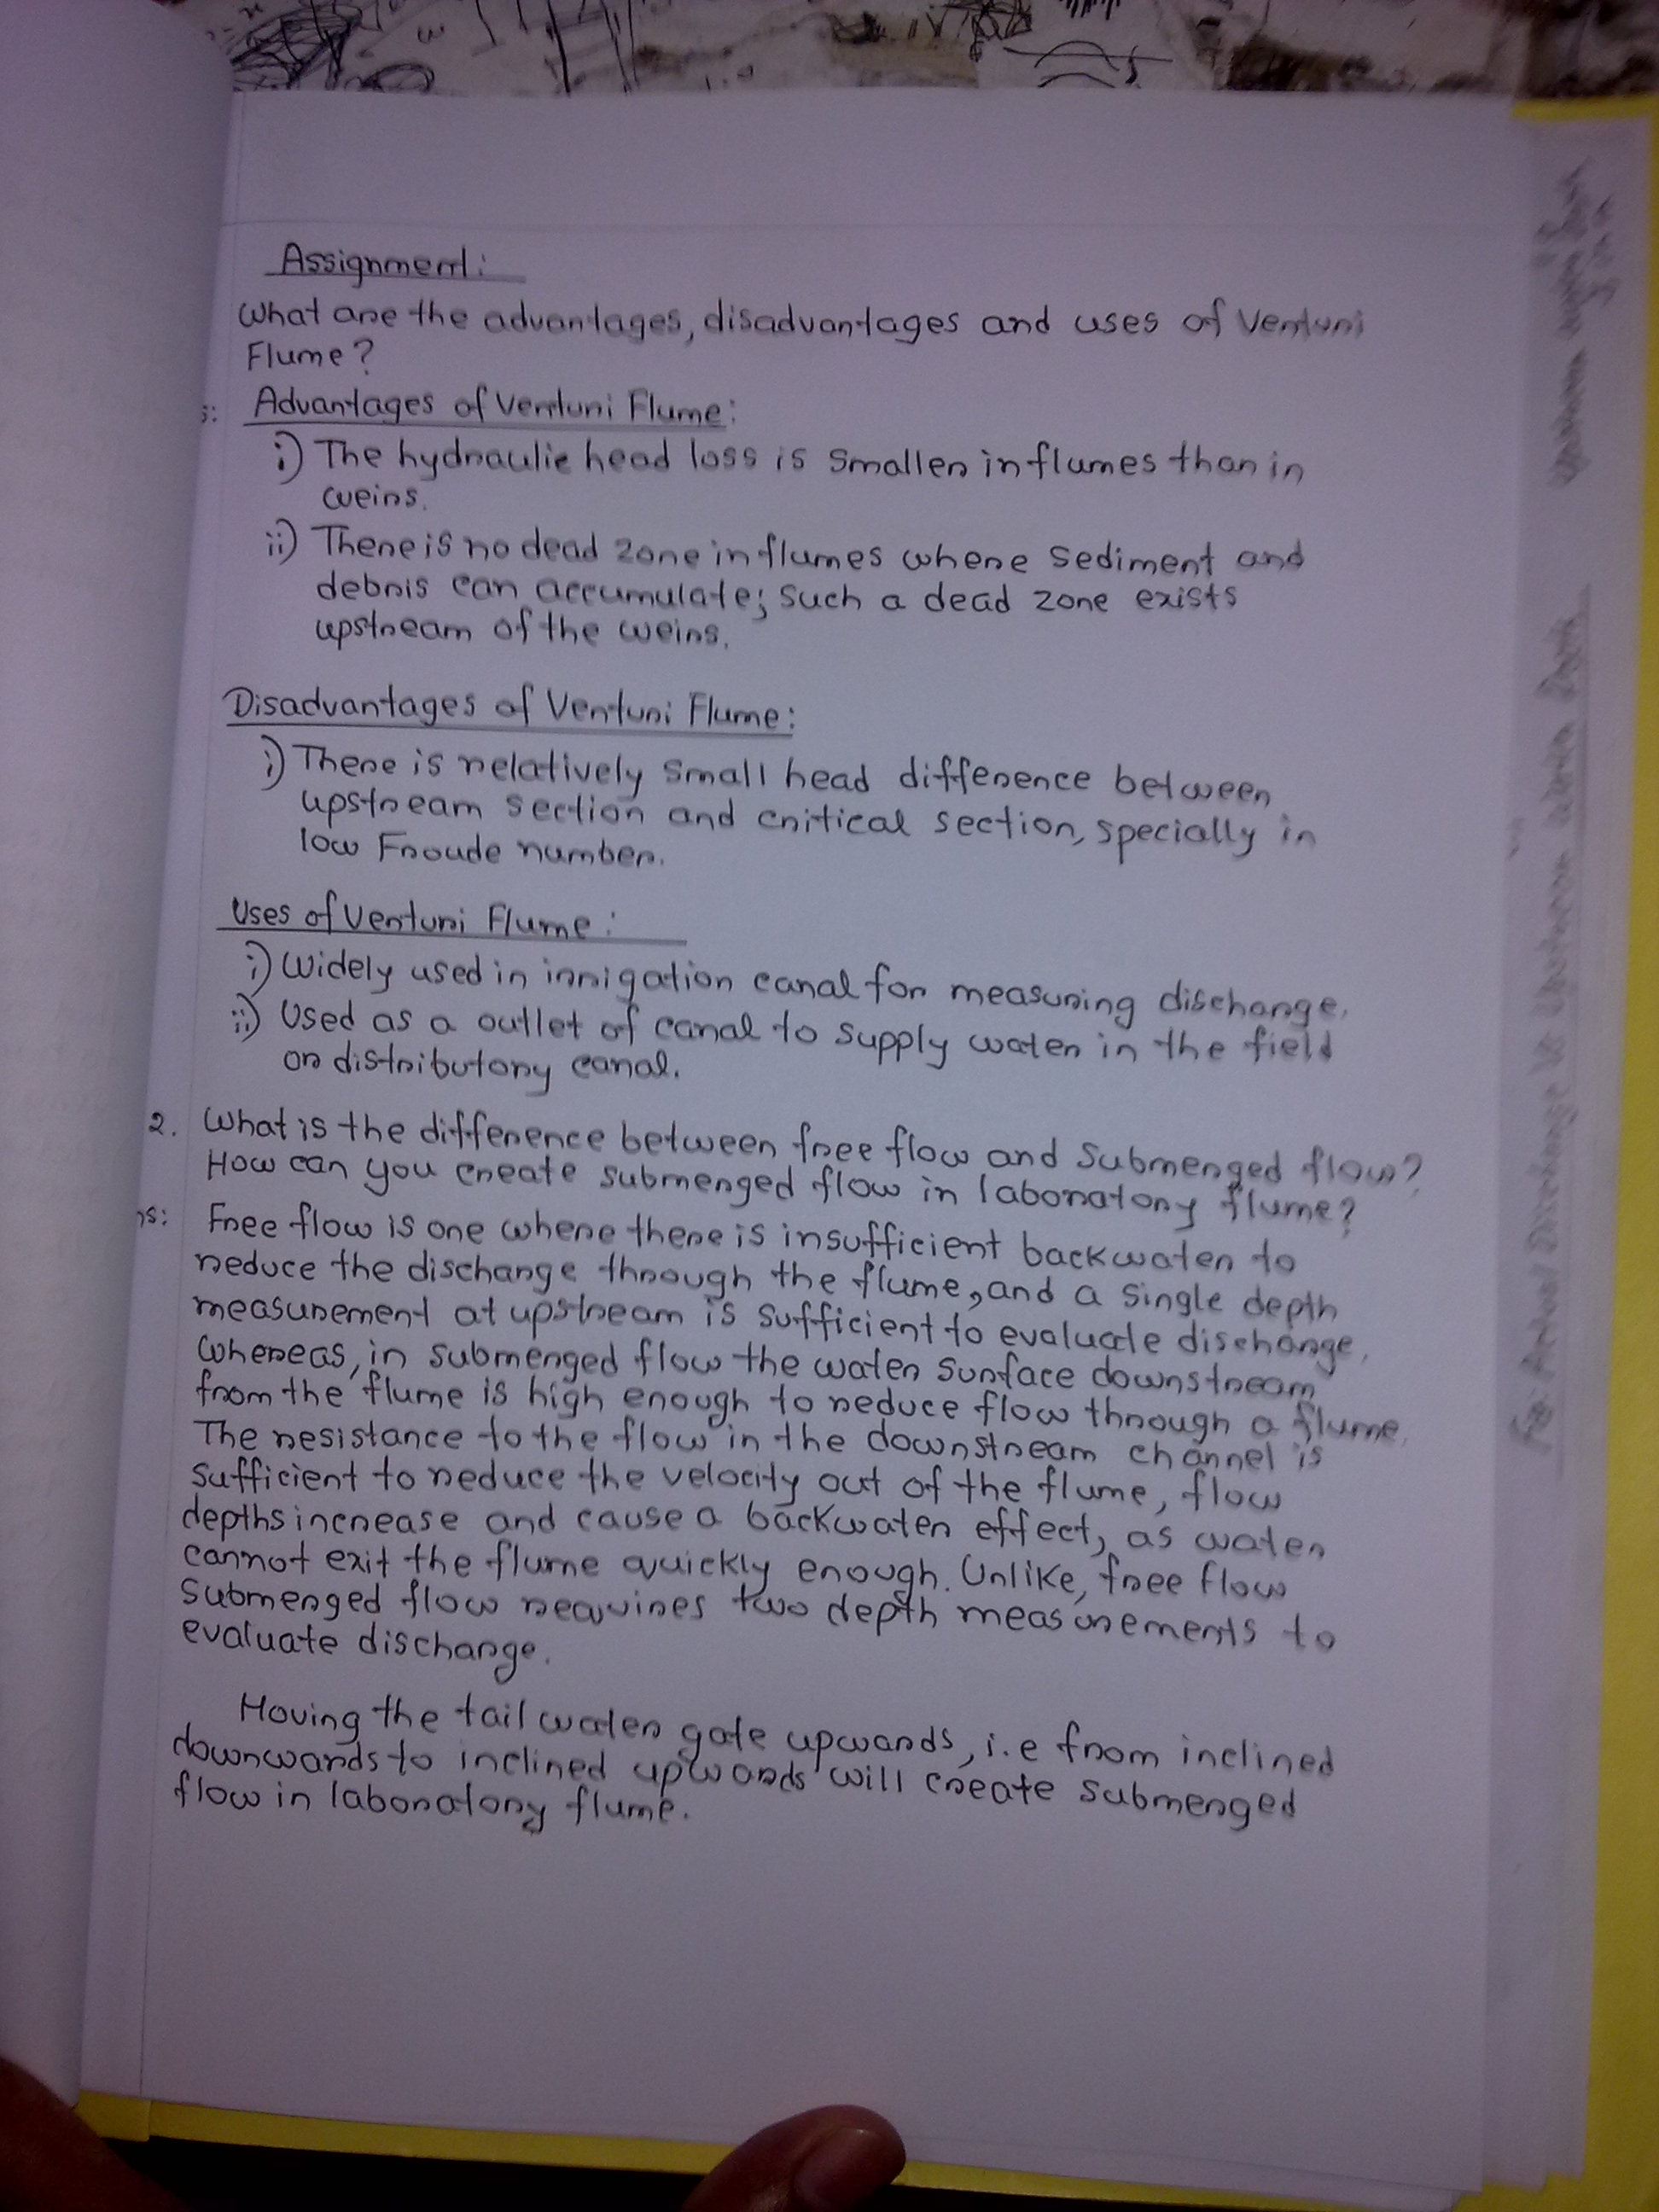 Assignment:
What are the advantages, disadvantages and uses of Venturi
Flume?
s: Advantages of Venturi Flume:
i) The hydraulic head loss is smaller in flumes than in
weirs.
ii) There is no dead zone in flumes where sediment and
debris can accumulate; such a dead zone exists
upstream of the weirs.
Disadvantages of Venturi Flume:
i) There is relatively small head difference between
upstream section and critical section, specially in
low Froude number.
Uses of Venturi Flume:
i) Widely used in irrigation canal for measuring discharge.
ii) Used as a outlet of canal to supply water in the field
or distributory canal.
2. What is the difference between free flow and submerged flow?
How can you create submerged flow in laboratory flume?
ns: Free flow is one where there is insufficient backwater to
reduce the discharge through the flume, and a single depth
measurement at upstream is sufficient to evaluate discharge.
Whereas, in submerged flow the water surface downstream
from the flume is high enough to reduce flow through a flume.
The resistance to the flow in the downstream channel is
sufficient to reduce the velocity out of the flume, flow
depths increase and cause a backwater effect, as water
cannot exit the flume quickly enough. Unlike, free flow
submerged flow requires two depth measurements to
evaluate discharge.
Moving the tail water gate upwards, i.e from inclined
downwards to inclined upwards will create submerged
flow in laboratory flume.